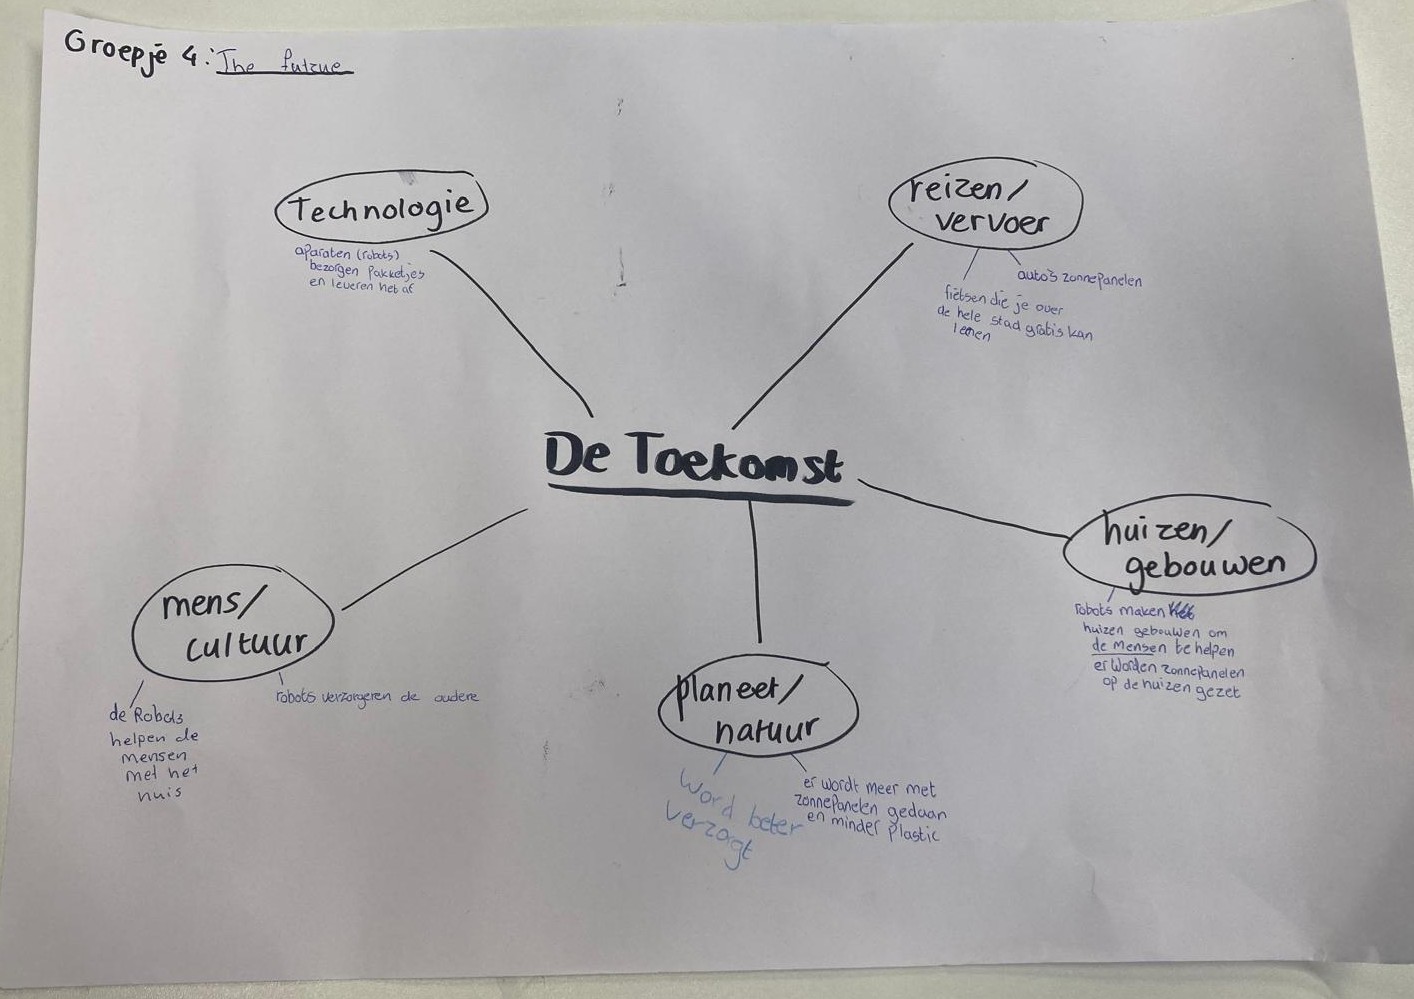 Groepje 4: The futrue
Technologie
aparaten (robots)
bezorgen pakketjes
en leveren het af
reizen/
vervoer
auto's zonnepanelen
fietsen die je over
de hele stad gratis kan
lenen
De Toekomst
huizen/
gebouwen
robots maken
huizen gebouwen om
de mensen te helpen
er worden zonnepanelen
op de huizen gezet
mens/
cultuur
robots verzorgeren de oudere
de Robots
helpen de
mensen
met het
huis
planeet/
natuur
word beter
verzorgt
er wordt meer met
zonnepanelen gedaan
en minder plastic